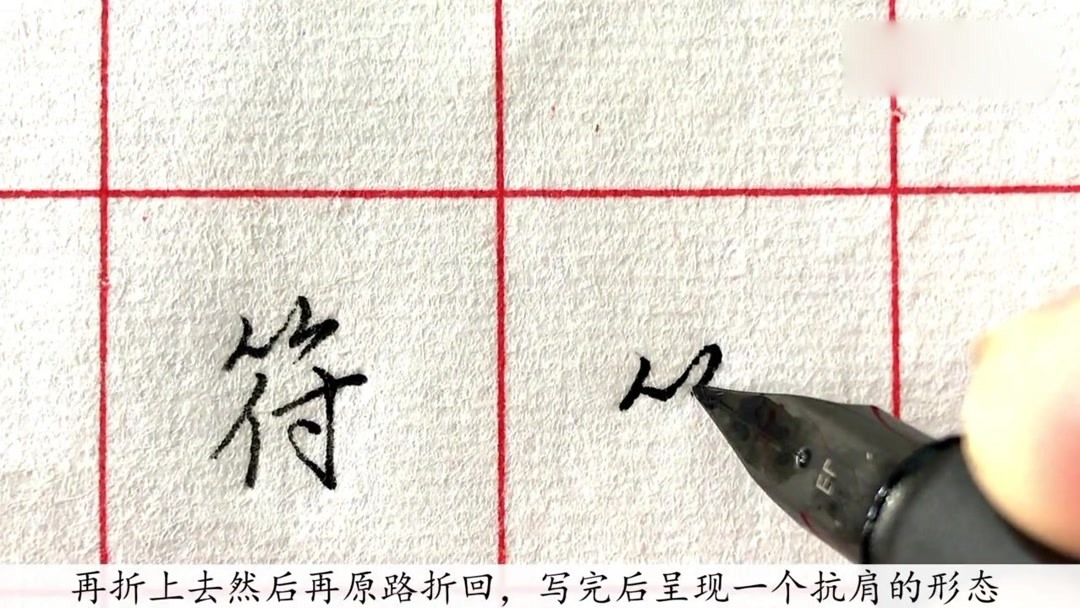 符
EF
再折上去然后再原路折回，写完后呈现一个抗肩的形态